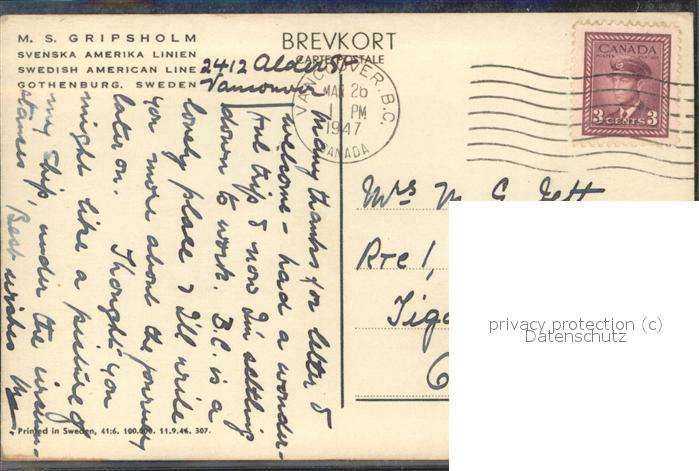 M. S. GRIPSHOLM
SVENSKA AMERIKA LINIEN
SWEDISH AMERICAN LINE
GOTHENBURG, SWEDEN
BREVKORT
CARTE POSTALE
2412 Alder St
Vancouver
VANCOUVER, B.C.
MAR 26
1 PM
1947
CANADA
CANADA
3 CENTS 3
Many thanks for letter &
welcome - had a wonder-
ful trip & now I'm settling
down to work. B.C. is a
lovely place & I'll write
you more about the journey
later on. Thought you
might like a picture of
my ship, under the circum-
stances Best wishes
Mrs M. E.
Rte 1,
Tiga
Printed in Sweden, 41:6. 100.000. 11.9.46. 307.
privacy protection (c)
Datenschutz